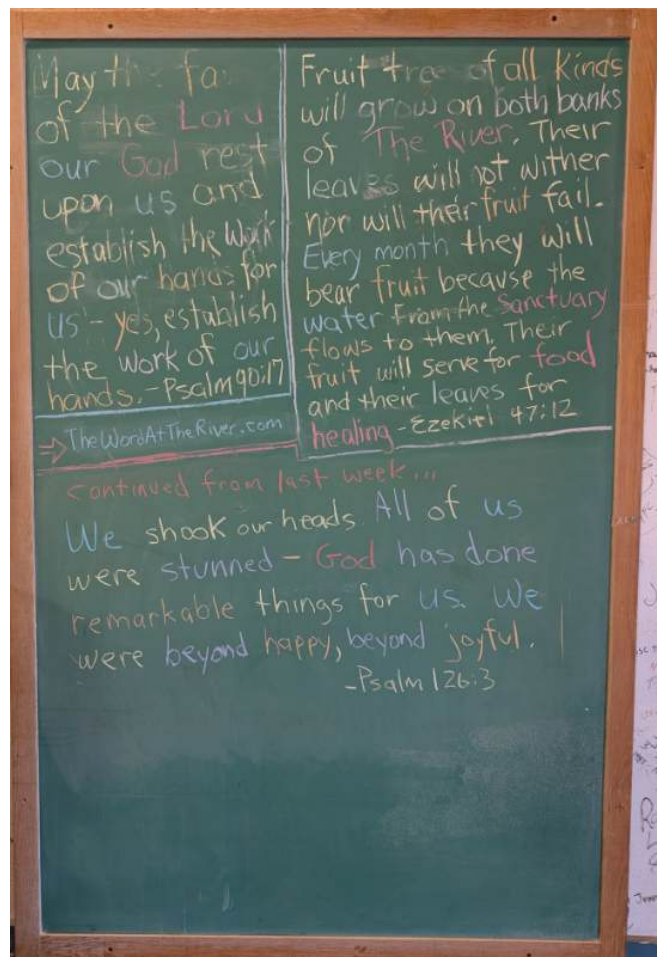 May the fa
of the Lord
our God rest
upon us and
establish the work
of our hands for
us - yes, establish
the work of our
hands. - Psalm 90:17
→ TheWordAtTheRiver.com
Fruit tree of all kinds
will grow on both banks
of The River. Their
leaves will not wither
nor will their fruit fail.
Every month they will
bear fruit because the
water from the Sanctuary
flows to them. Their
fruit will serve for food
and their leaves for
healing - Ezekiel 47:12
continued from last week...
We shook our heads. All of us
were stunned - God has done
remarkable things for us. We
were beyond happy, beyond joyful.
-Psalm 126:3